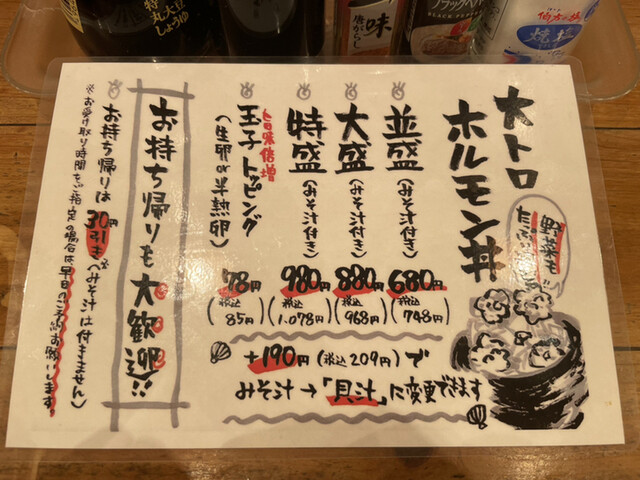 大トロ
ホルモン丼
野菜も
並盛(みそ汁付き)680円(税込748円)
大盛(みそ汁付き)880円(税込968円)
特盛(みそ汁付き)980円(税込1,078円)
旨味倍増
玉子トッピング
(生卵or半熟卵)78円(税込85円)
+190円(税込209円)で
みそ汁→「貝汁」に変更できます
お持ち帰りも大歓迎!!
お持ち帰りは30円引き※(みそ汁は付きません)
※お受け取り時間をご指定の場合は、早目のご予約お願いします。
特
丸大豆
しょうゆ
味
唐がらし
ブラックペパー
BLACK PEPPER
伯方の塩
焼塩